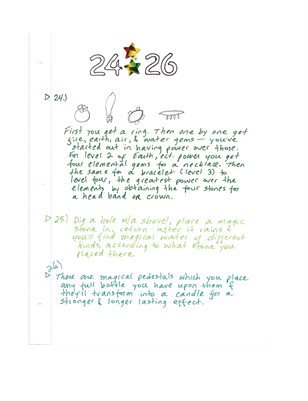 24 26
24.)
First you get a ring. Then one by one get
fire, earth, air, & water gems — you've
started out in having power over those.
For level 2 of Earth, ect. power you get
four elemental gems for a necklace. Then
the same for a bracelet (level 3) to
level four, the greatest power over the
elements by obtaining the four stones for
a head band or crown.
25) Dig a hole w/a shovel, place a magic
stone in, return after it rains &
you'll find magical water of different
kinds, according to what stone you
placed there.
26)
These are magical pedestals which you place
any full bottle you have upon them &
they'll transform into a candle for a
stronger & longer lasting effect.